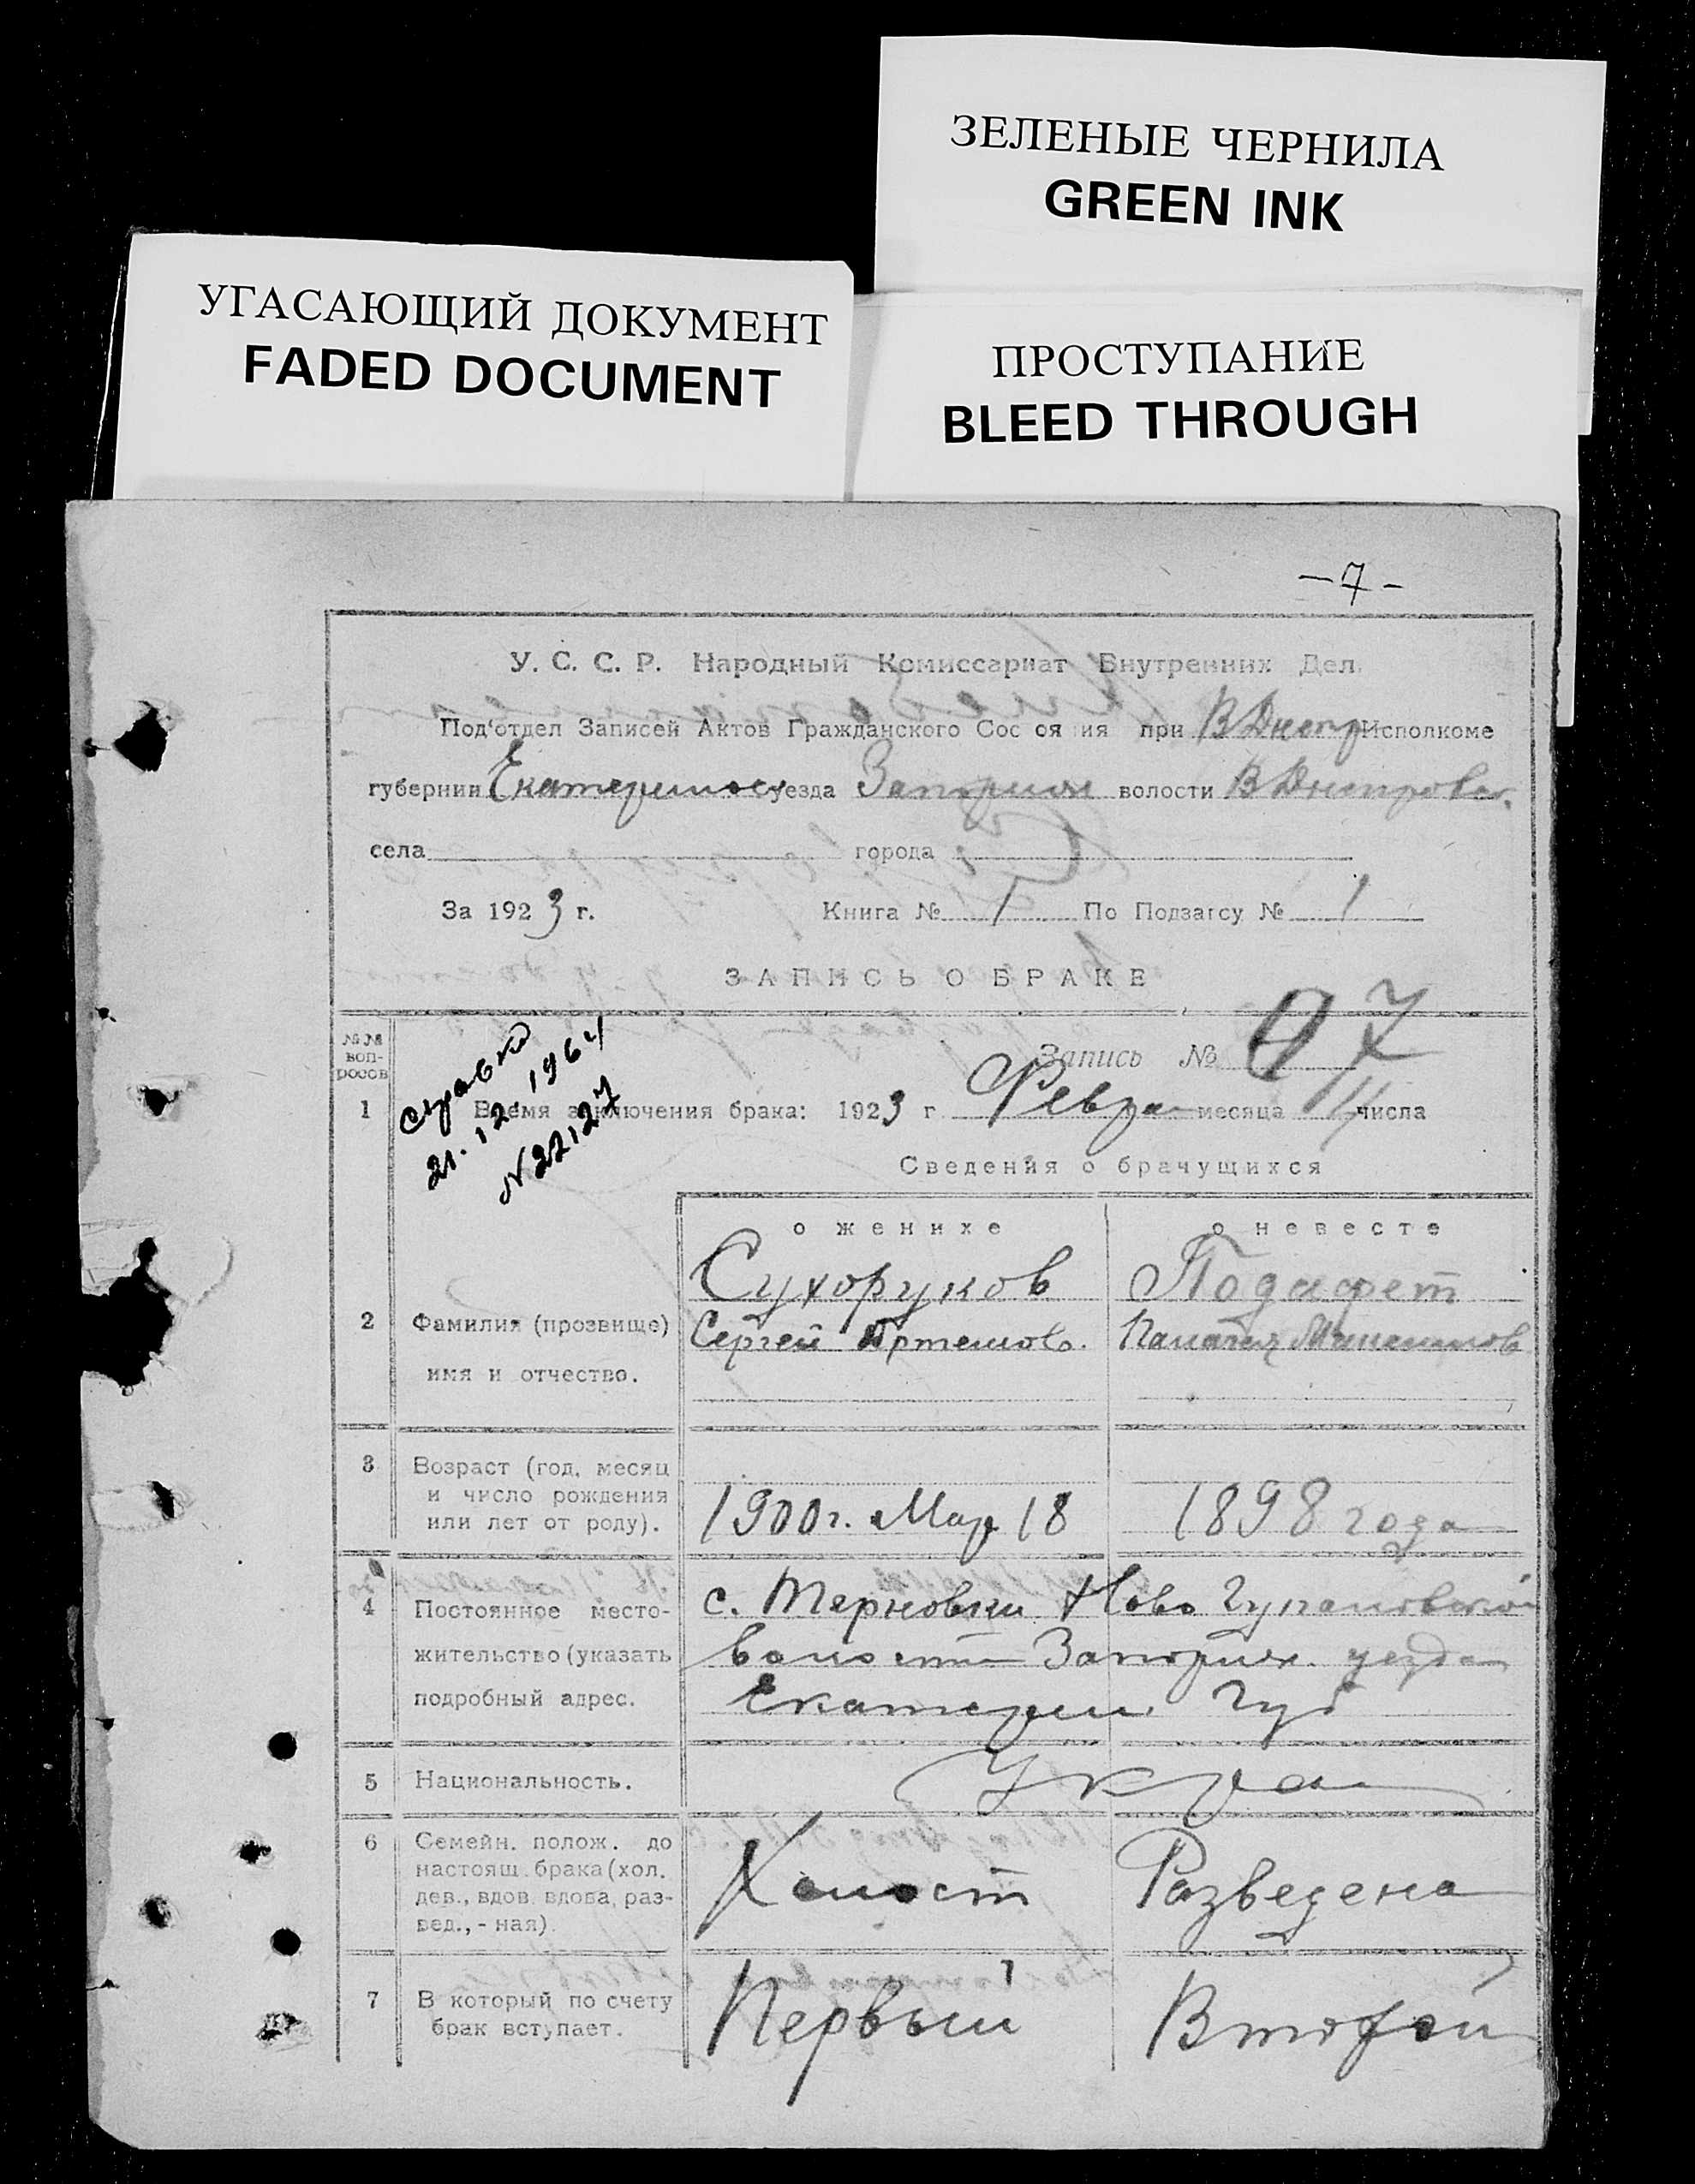 ЗЕЛЕНЫЕ ЧЕРНИЛА
GREEN INK
УГАСАЮЩИЙ ДОКУМЕНТ
FADED DOCUMENT
ПРОСТУПАНИЕ
BLEED THROUGH
— 7 -
У. С. С. Р. Народный Комиссариат Внутренних Дел.
Под'отдел Записей Актов Гражданского Сос оя ия при В Днепр Исполкоме
губернии Екатеринос уезда Запорож волости В Днепровск.
села города
За 1923 г. Книга № 1 По Подзагсу № 1
ЗАПИСЬ О БРАКЕ
№№ воп-росов
Запись № 7
справка
21.12.1964
N 2212
1 Время заключения брака: 1923 г Февра месяца 11 числа
Сведения о брачущихся
о женихе о невесте
Сухоруков
2 Фамилия (прозвище) Сергей Артемов.
имя и отчество.
3 Возраст (год, месяц
и число рождения
или лет от роду). 1900 г. Мар 18 1898 года
с. Терновки Ново
4 Постоянное место-
жительство (указать волости Запорож. уезда
подробный адрес. Екатерин. Губ
5 Национальность. Укра
6 Семейн. полож. до
настоящ. брака (хол.
дев., вдов. вдова, раз- Холост Разведена
вед., - ная).
7 В который по счету Первый Второй
брак вступает.